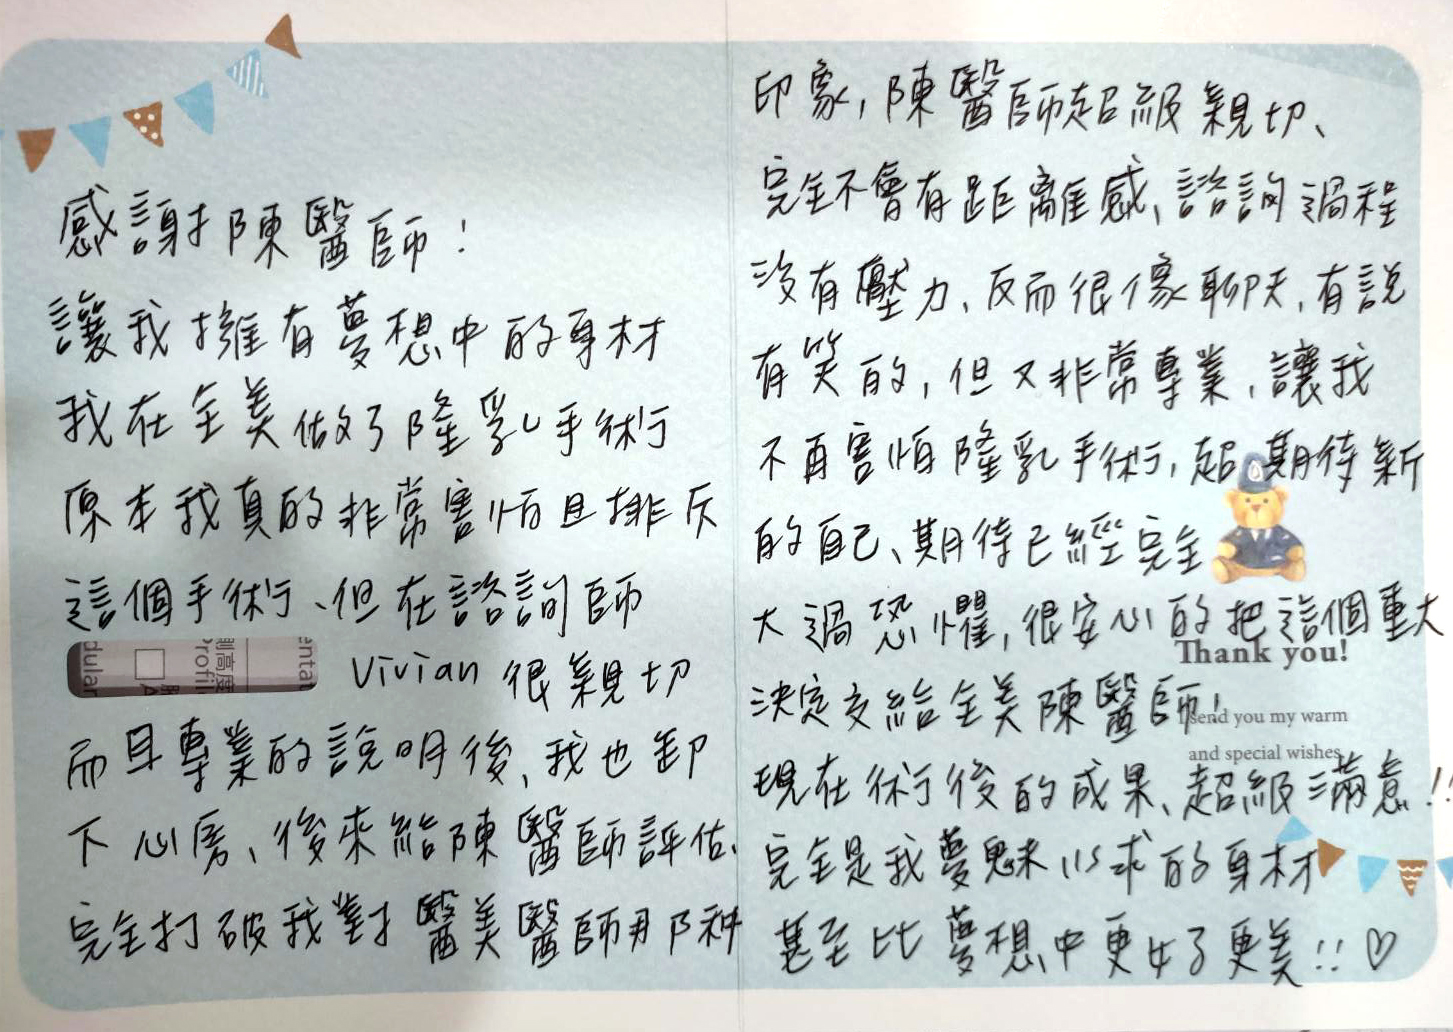 感謝陳醫師！
讓我擁有夢想中的身材
我在全美做了隆乳手術
原本我真的非常害怕且排斥
這個手術、但在諮詢師
Vivian 很親切
而且專業的說明後、我也卸
下心房、後來給陳醫師評估、
完全打破我對醫美醫師那種
印象，陳醫師超級親切、
完全不會有距離感、諮詢過程
沒有壓力、反而很像聊天，有說
有笑的，但又非常專業，讓我
不再害怕隆乳手術，超期待新
的自己、期待已經完全
大過恐懼，很安心的把這個重大
決定交給全美陳醫師！
現在術後的成果、超級滿意！！
完全是我夢魅以求的身材
甚至比夢想中更好了更美！！♡
Thank you!
I send you my warm
and special wishes